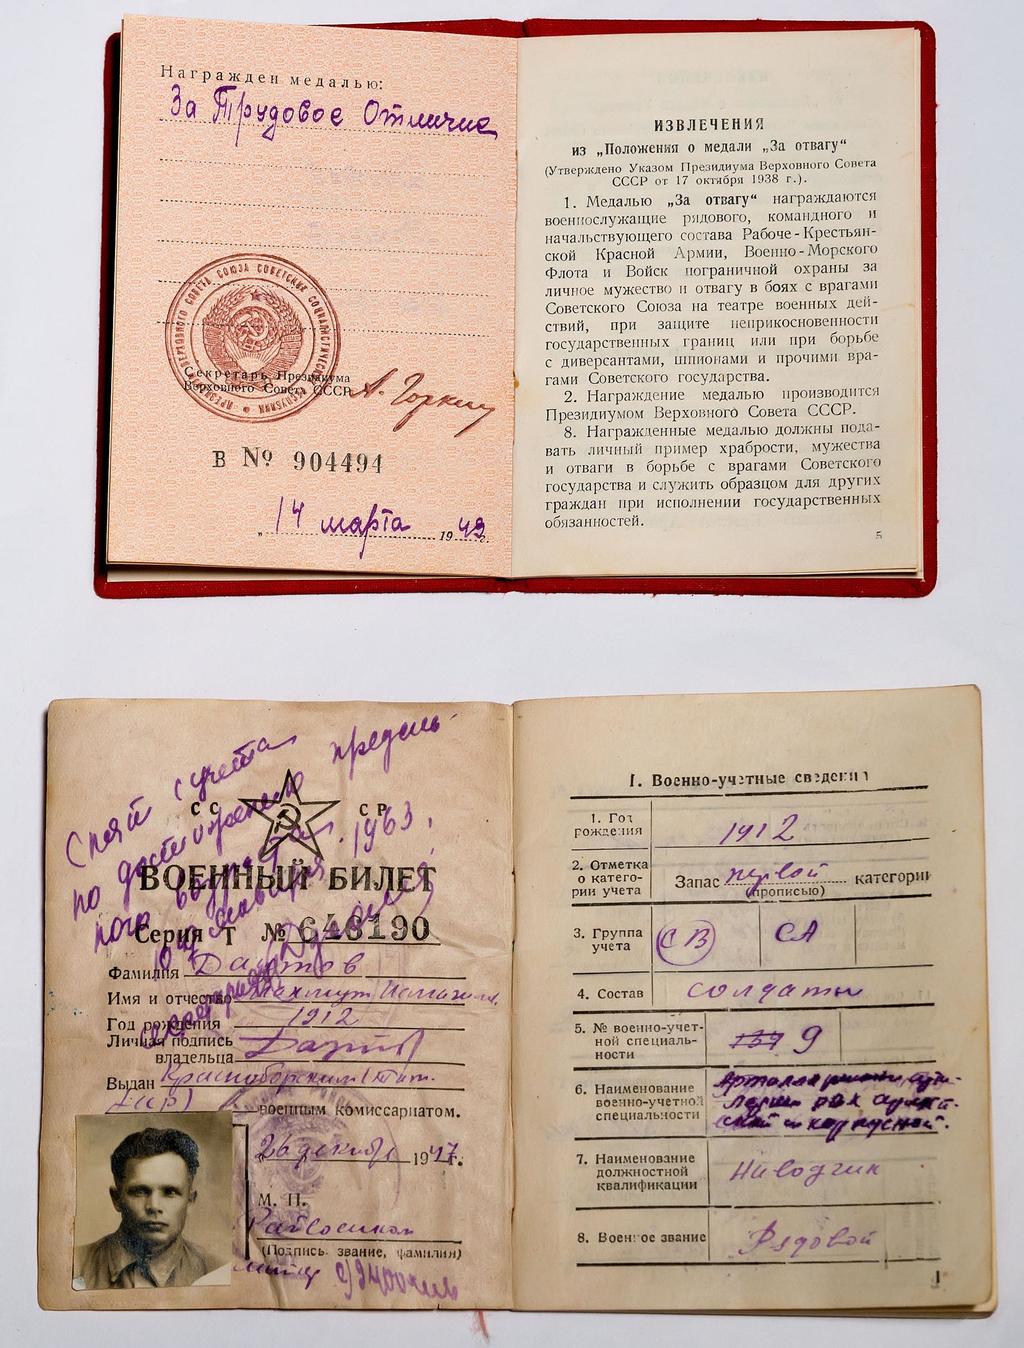 Награжден медалью:
За Трудовое Отличие
Секретарь Президиума
Верховного Совета СССР
А. Горкин
В № 904494
„14 марта 1949 г.
ИЗВЛЕЧЕНИЯ
из „Положения о медали „За отвагу“
(Утверждено Указом Президиума Верховного Совета
СССР от 17 октября 1938 г.).
1. Медалью „За отвагу“ награждаются
военнослужащие рядового, командного и
начальствующего состава Рабоче-Крестьян-
ской Красной Армии, Военно-Морского
Флота и Войск пограничной охраны за
личное мужество и отвагу в боях с врагами
Советского Союза на театре военных дей-
ствий, при защите неприкосновенности
государственных границ или при борьбе
с диверсантами, шпионами и прочими вра-
гами Советского государства.
2. Награждение медалью производится
Президиумом Верховного Совета СССР.
8. Награжденные медалью должны пода-
вать личный пример храбрости, мужества
и отваги в борьбе с врагами Советского
государства и служить образцом для других
граждан при исполнении государственных
обязанностей.
5
Снят с учета
по достижению предель-
ного возраста
января 1963.
СС СР
ВОЕННЫЙ БИЛЕТ
Серия Т № 648190
Фамилия Даутов
Имя и отчество Махмут
Год рождения 1912
Личная подпись
владельца
Выдан Красноборским (Тат.
АССР)
военным комиссариатом.
26 декабря 1947 г.
М. П.
(Подпись, звание, фамилия)
1. Военно-учетные сведения
1. Год
рождения 1912
2. Отметка
о катего-
рии учета
Запас первой категории
(прописью)
3. Группа
учета СВ СА
4. Состав солдаты
5. № военно-учет-
ной специаль-
ности 9
6. Наименование
военно-учетной
специальности
7. Наименование
должностной
квалификации
Наводчик
8. Военное звание Рядовой
1